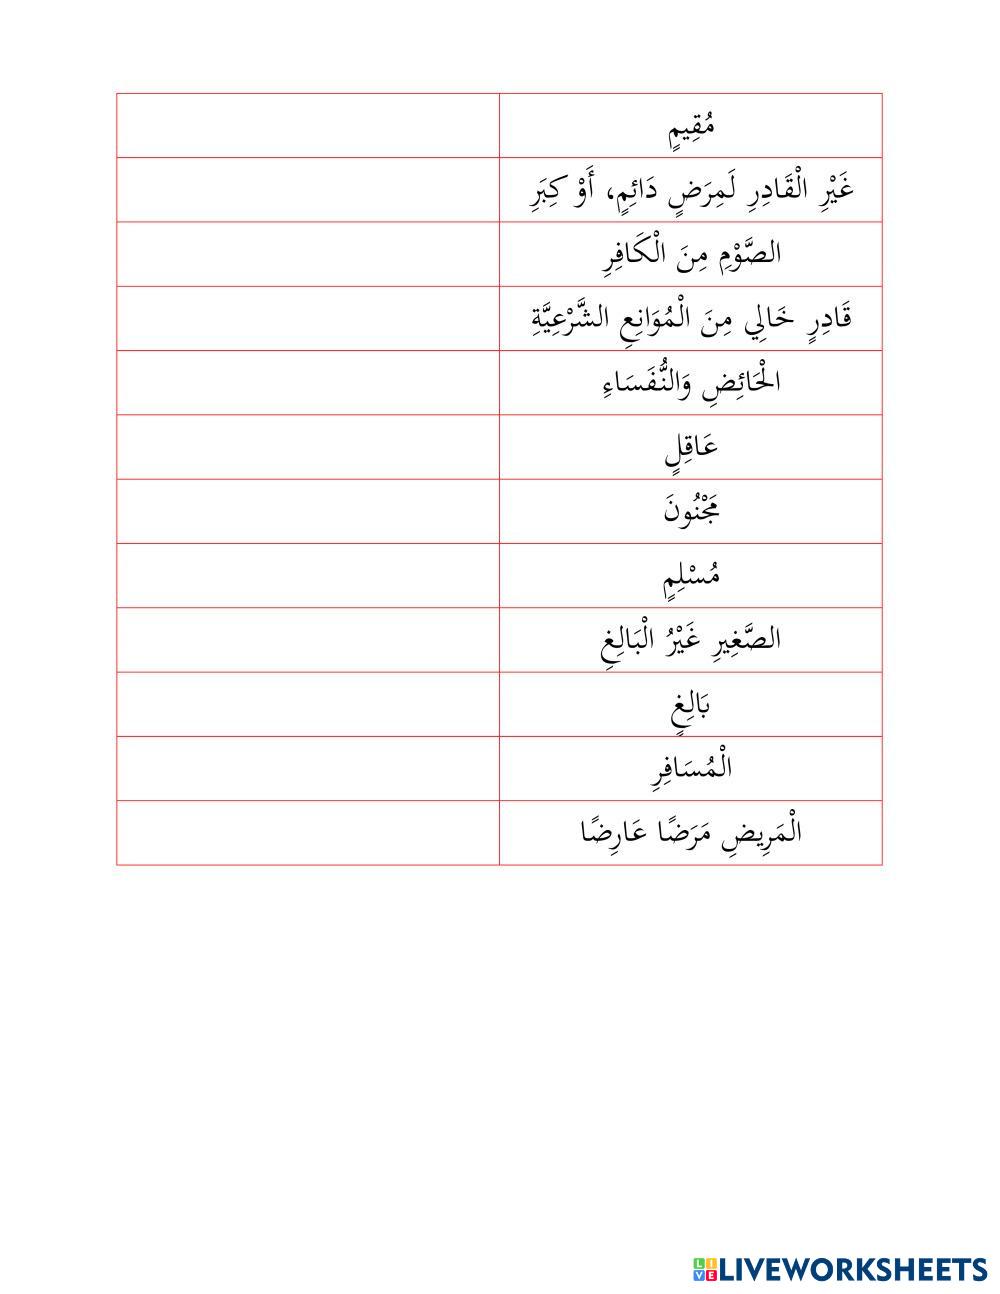 مُقِيمٍ
غَيْرِ الْقَادِرِ لَمِرَضٍ دَائِمٍ، أَوْ كِبَرِ
الصَّوْمِ مِنَ الْكَافِرِ
قَادِرٍ خَالِي مِنَ الْمُوَانِعِ الشَّرْعِيَّةِ
الْحَائِضِ وَالنُّفَسَاءِ
عَاقِلٍ
مَجْنُونَ
مُسْلِمٍ
الصَّغِيرِ غَيْرُ الْبَالِغِ
بَالِغٍ
الْمُسَافِرِ
الْمَرِيضِ مَرَضًا عَارِضًا
LIVE LIVEWORKSHEETS